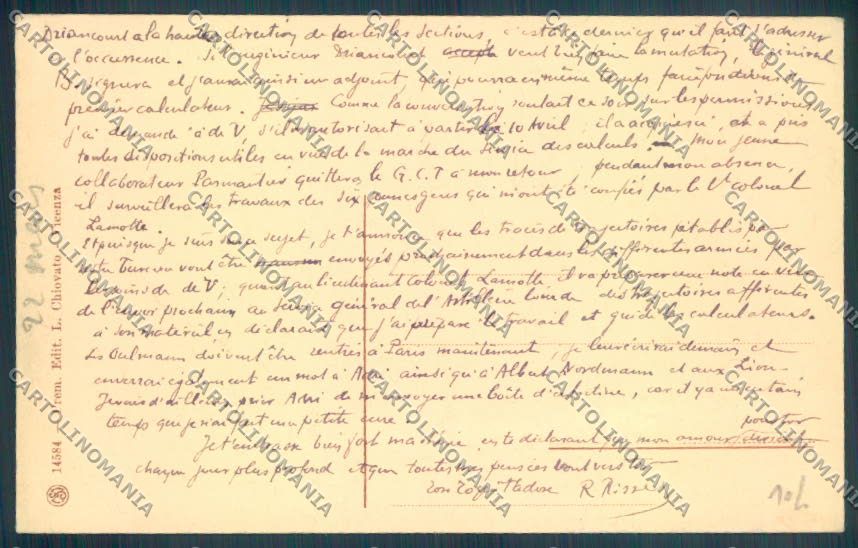 Driancourt a la haute direction de toutes les sections, c'est à ce dernier qu'il faut s'adresser
l'occurrence. Si l'ingénieur Driancourt veut bien faire la mutation, le général
B. signera et j'aurai ainsi un adjoint qui pourra en même temps faire fonctions de
premier calculateur. Comme la conversation roulait ce soir sur les permissions
j'ai demandé à de V, s'il m'autorisait à partir le 10 Avril, il a acquiescé, et a pris
toutes dispositions utiles en vue de la marche du Service des calculs. Mon jeune
collaborateur Parmantier quittera le G.C.T à mon retour, pendant mon absence,
il surveillera les travaux des six jeunes gens qui m'ont été confiés par le Lt colonel
Lamotte.
Et puisque je suis sur ce sujet, je t'annonce que les tracés de trajectoires établis par
notre bureau vont être envoyés prochainement dans les différentes armées par
les soins de de V; quant au lieutenant Colonel Lamotte il va préparer une note en vue
de l'envoi prochain au service général de l'Artillerie lourde des trajectoires afférentes
à son matériel, en déclarant que j'ai préparé le travail et guidé les calculateurs.
Les Oulmann doivent être rentrés à Paris maintenant, je leur écrirai demain et
enverrai également un mot à Adri ainsi qu'à Albert Nordmann et aux Lion.
Je vais d'ailleurs prier Adri de m'envoyer une boîte d', car il y a un certain
temps que je n'ai fait ma petite cure
Je t'embrasse bien fort ma chérie, en te déclarant que mon amour pour toi
chaque jour plus profond et que toutes mes pensées vont vers toi
Ton R. Risser
22 mars
14584 Prem. Edit. L. Chiovato Vicenza
10L
CARTOLINOMANIA